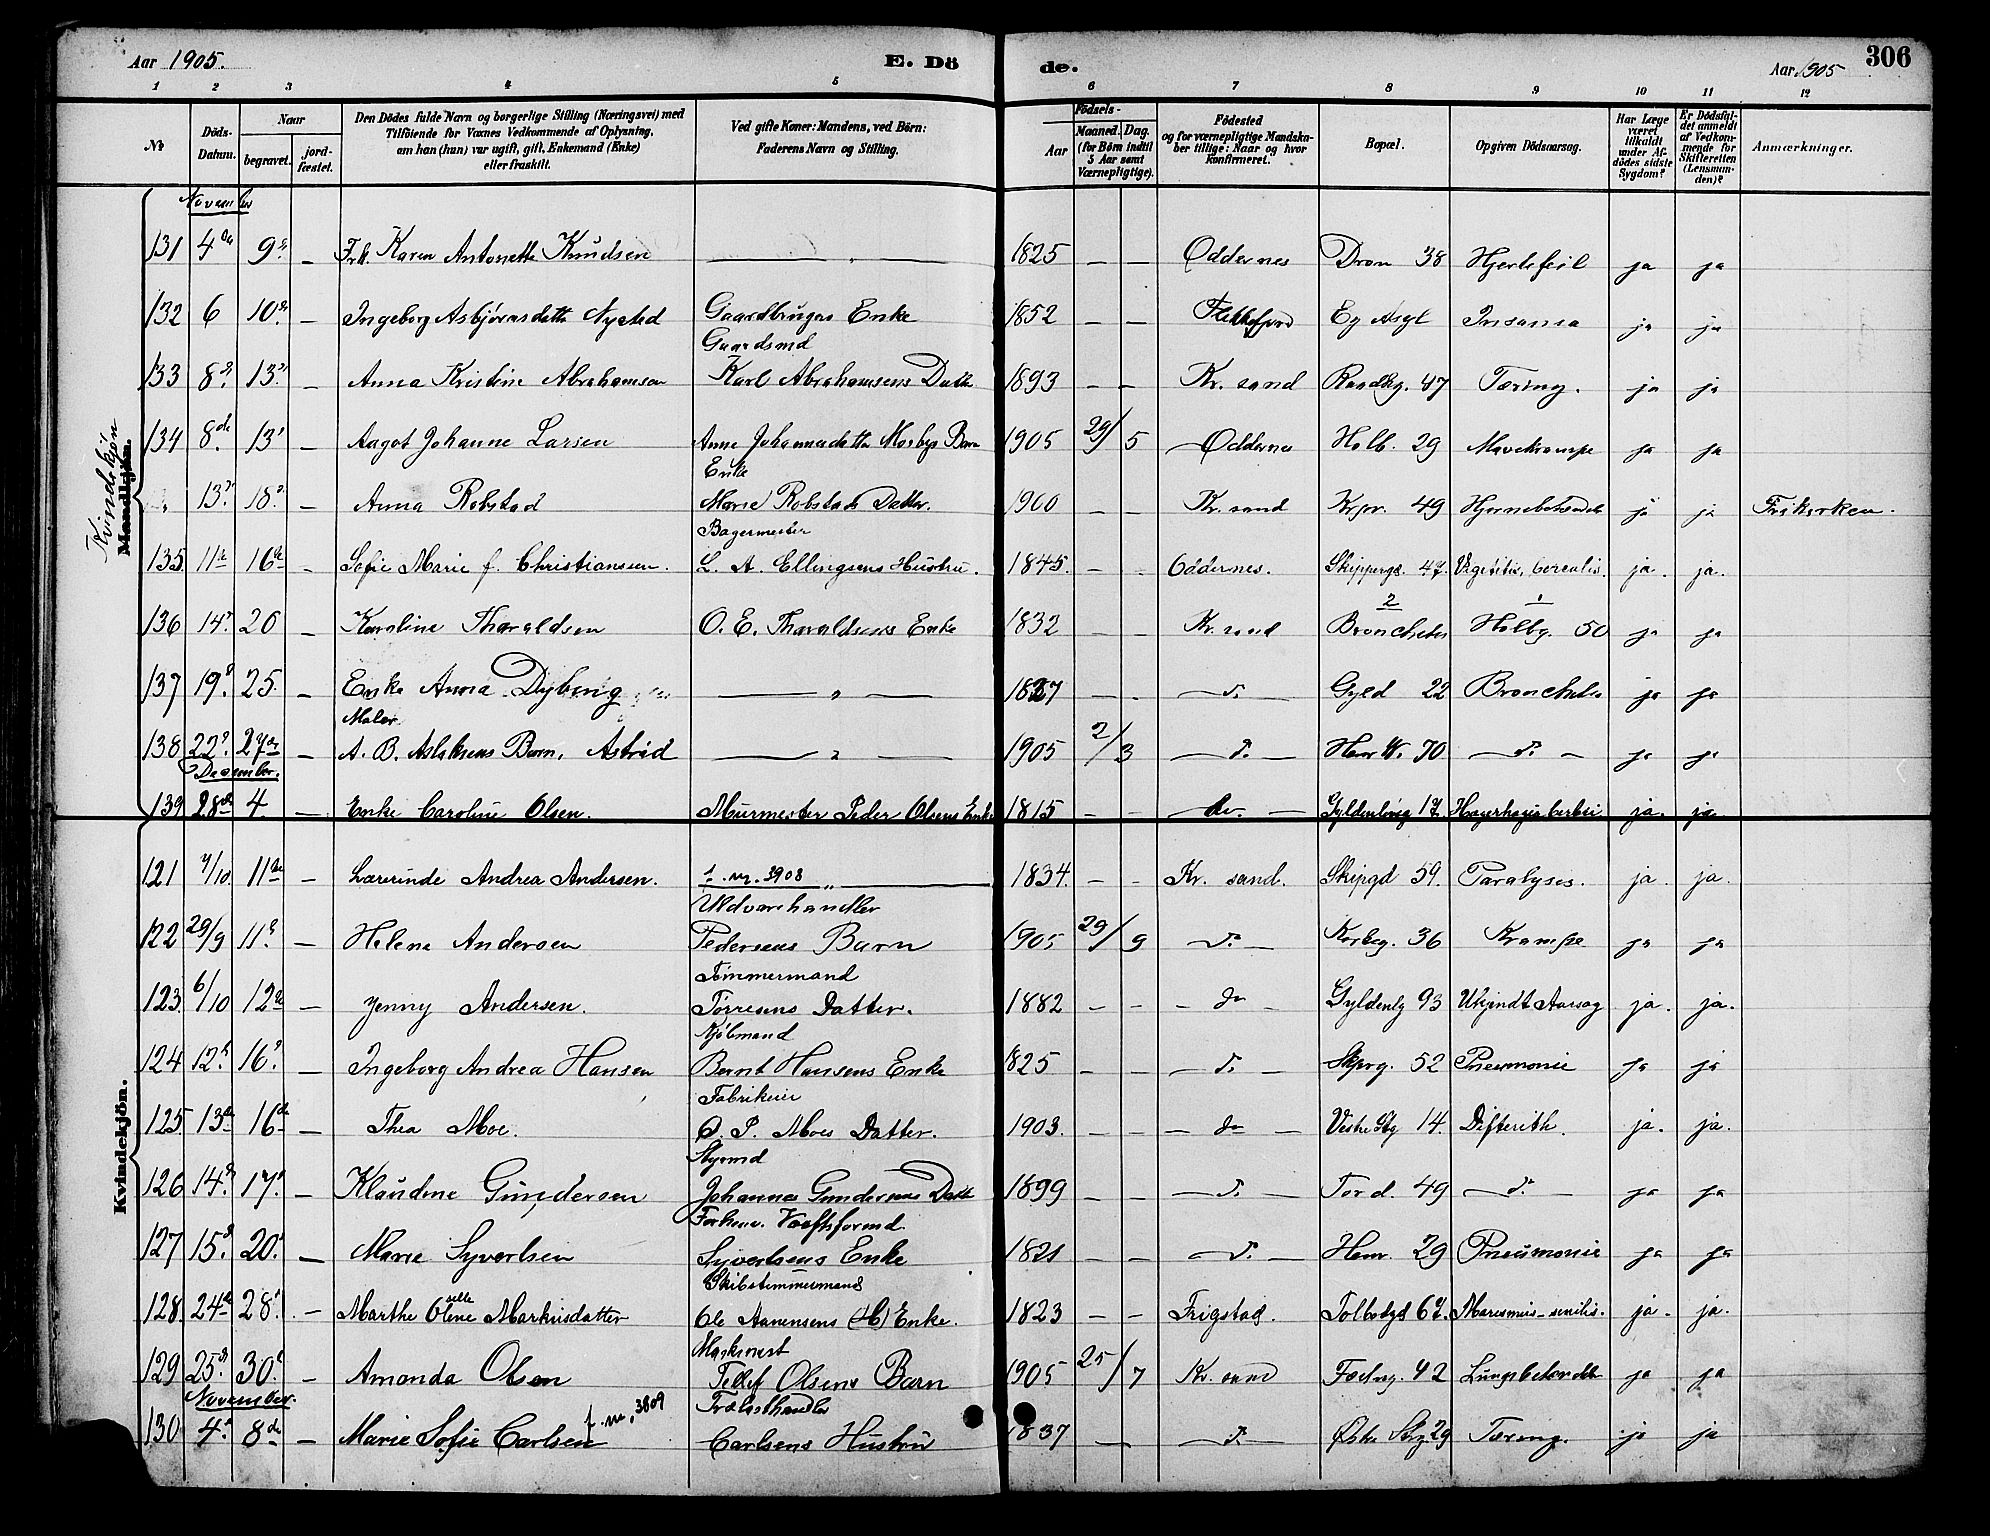 Aar 1905. E. Dö de. Aar 1905 306
1 2 3 4 5 6 7 8 9 10 11 12
No Döds-Datum. Naar begravet. jord-fæstet. Den Dödes fulde Navn og borgerlige Stilling (Næringsvei) med Tilföiende for Voxnes Vedkommende af Oplysning, om han (hun) var ugift, gift, Enkemand (Enke) eller fraskilt. Ved gifte Koner: Mandens, ved Börn: Faderens Navn og Stilling. Födsels- Aar Maaned. Dag. (for Börn indtil 5 Aar samt Værnepligtige). Födested og for værnepligtige Mandskaber tillige: Naar og hvor konfirmeret. Bopæl. Opgiven Dödsaarsag. Har Læge været tilkaldt under Afdödes sidste Sygdom? Er Dödsfaldet anmeldt af Vedkommende for Skifteretten (Lensmanden)? Anmærkninger.
Kvindekjön
Mandkjön.
November
131 4de 9de — Frk. Karen Antonette Knudsen — „ — 1825 — — Oddernes Dron 38 Hjertefeil ja ja
132 6 10de — Ingeborg Asbjörnsdatter Nysted Gaardbrugers Enke 1852 — — Flekkefjord Eg Asyl Insania ja ja
Gaardsmd
133 8de 13de — Anna Kristine Abrahamsen Karl Abrahamsens Datter 1893 — — Kr. sand 47 Tæring. ja ja
134 8de 13de — Aagot Johanne Larsen Anne Johannesdatter Mosbys Barn 1905 29/5 Oddernes Holb. 29 Mavekrampe ja ja
Enke
„ 13de 18de — Anna Robstad Marie Robstads Datter. 1900 — — Kr. sand 49 ja ja Frikirken.
Bagermester
135 11te 16de — Sofie Marie f. Christiansen. L. A. Ellingsens Hustru. 1845. — — Oddernes. Skipperg. 47. ja. ja.
136 14de 20 — Karoline Tharaldsen O. E. Tharaldsens Enke 1832 — — Kr. sand 2 Bronchites 1 Holbg. 50 ja ja
137 19de 25. — Enke Anna Dybing — „ — 1827 — — — do — Gyld 22 Bronchites ja ja
Maler
138 22de 27de — A. B. Aslaksens Barn, Astrid — „ — 1905 2/3 — do — Henr W. 70 — do — ja ja
December.
139 28de 4 — Enke Caroline Olsen. Murmester Peder Olsens Enke 1815 — — — do. — Gyldenlövsg 17. ja. ja.
Kvindekjön.
121 7/10 11te — Lærerinde Andrea Andersen. f. m. 3908 „ 1834. — — Kr. sand. Skipgd 59. Paralyses. ja. ja.
Uldvarehandler
122 29/9 11te — Helene Andersen Pedersens Barn 1905 29/9 — do — 36 Krampe ja ja
Tömmermand
123 6/10 12te — Jenny Andersen. Törresens Datter. 1882 — — — do Gyldenlg 93 Ukjendt Aarsag ja. ja.
Kjöbmand
124 12te 16de — Ingeborg Andrea Hansen Bernt Hansens Enke 1825 — — — do — 52 Pneumonie ja ja
Fabrikeier
125 13de 16de — Thea Moe. O. P. Moes Datter. 1903. — — — do — Vestre Stg 14. Difterith. ja. ja.
Styrmd
126 14de 17de — Klaudine Gundersen Johannes Gundersens Datter 1899 — — — do — Tord. 49 — do — ja ja
Forhenv. Værftsformd.
127 15de 20de — Marie Syvertsen Syvertsens Enke 1821 — — — do — Henr. 29 Pneumonie ja ja
Skibstømmermand
128. 24de 28de — Marthe Olene Markusdatter Ole Aanensens Enke. 1823 — — Frigstad. Tolbodgd 67. Maresmus senilis. ja. ja.
Maskinest
129 25de 30te — Amanda Olsen Tellef Olsens Barn 1905 25/7 Kr. sand Fæstng. 42 Lungebetændelse ja ja
November. Trælasthandler
130 4de 8de — Marie Sofie Carlsen f. m. 3809 Carlsens Hustru 1837 — — do — Østre Stg 29 Tæring. ja ja